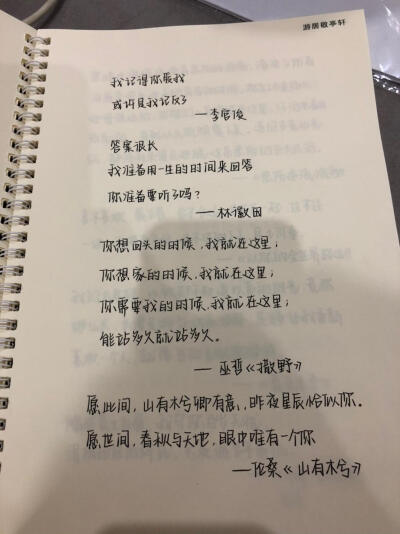 游居敬亭轩
我记得你眼我
或许是我记反了
——李宫俊
答案很长
我准备用一生的时间来回答
你准备要听了吗?
——林徽因
你想回头的时候,我就在这里;
你想家的时候,我就在这里;
你需要我的时候,我就在这里;
能站多久就站多久。
——巫哲《撒野》
愿此间,山有木兮卿有意,昨夜星辰恰似你。
愿世间,春秋与天地,眼中唯有一个你
——伦桑《山有木兮》